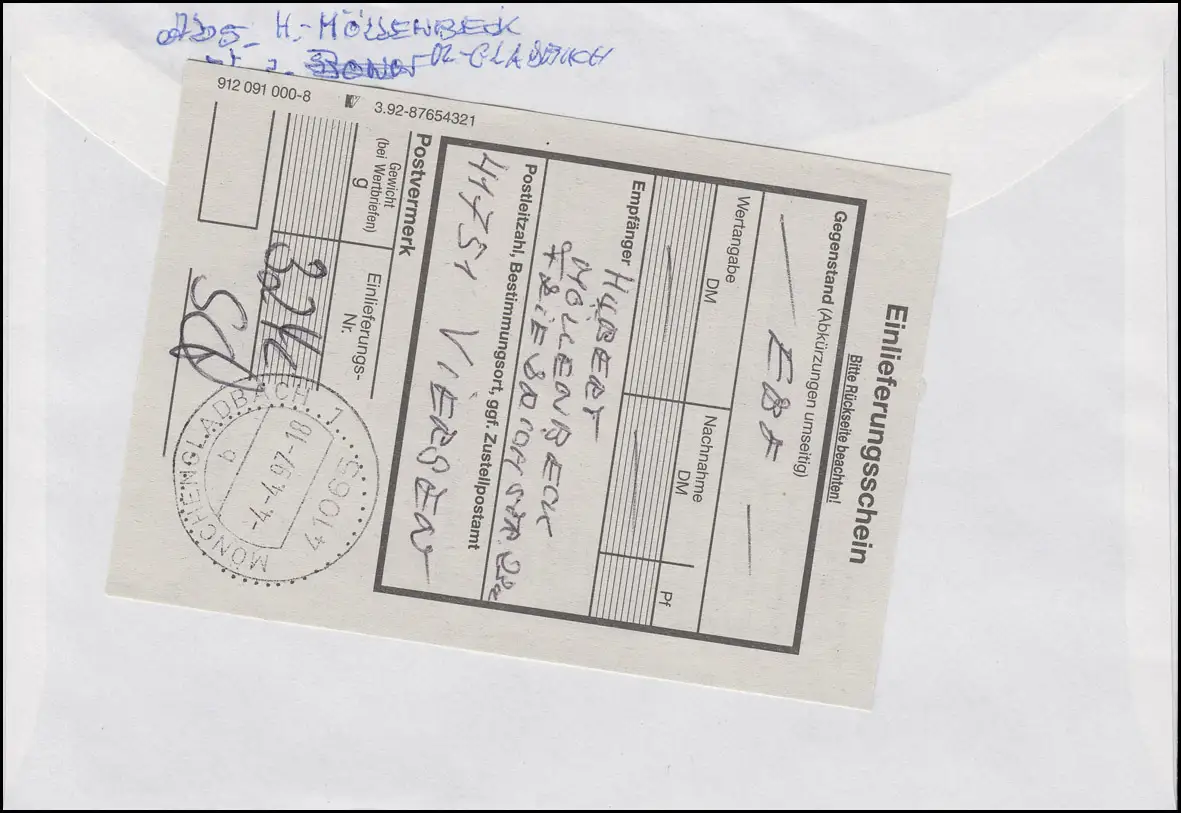 Abs. H. MÖLLENBECK
BONN M-GLADBACH
912 091 000-8 3.92-87654321
Einlieferungsschein
Bitte Rückseite beachten!
Gegenstand (Abkürzungen umseitig)
EBF
Wertangabe
DM
Nachnahme
DM
Pf
Empfänger
HUBERT
MÖLLENBECK
Postleitzahl, Bestimmungsort, ggf. Zustellpostamt
41751 VIERSEN
Postvermerk
Gewicht
(bei Wertbriefen)
g
Einlieferungs-
Nr.
324
MÖNCHENGLADBACH 1
b
-4.-4.97-18
41065